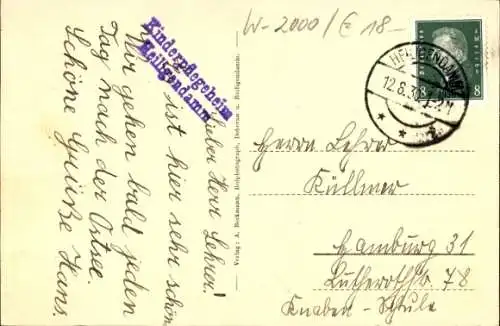 W-2000/E 18-
Kinderpflegeheim
Heiligendamm
Lieber Herr Lehrer!
Wir
ist hier sehr schön
Wir gehen bald jeden
Tag nach der Ostsee.
Schöne Grüße Hans.
Verlag: A. Beckmann, Hofphotograph, Doberan u. Heiligendamm.
HEILIGENDAMM
12.8.30
8 8
Herrn Lehrer
Küllmer
Hamburg 31
Lutherothstr 78
Knaben-Schule